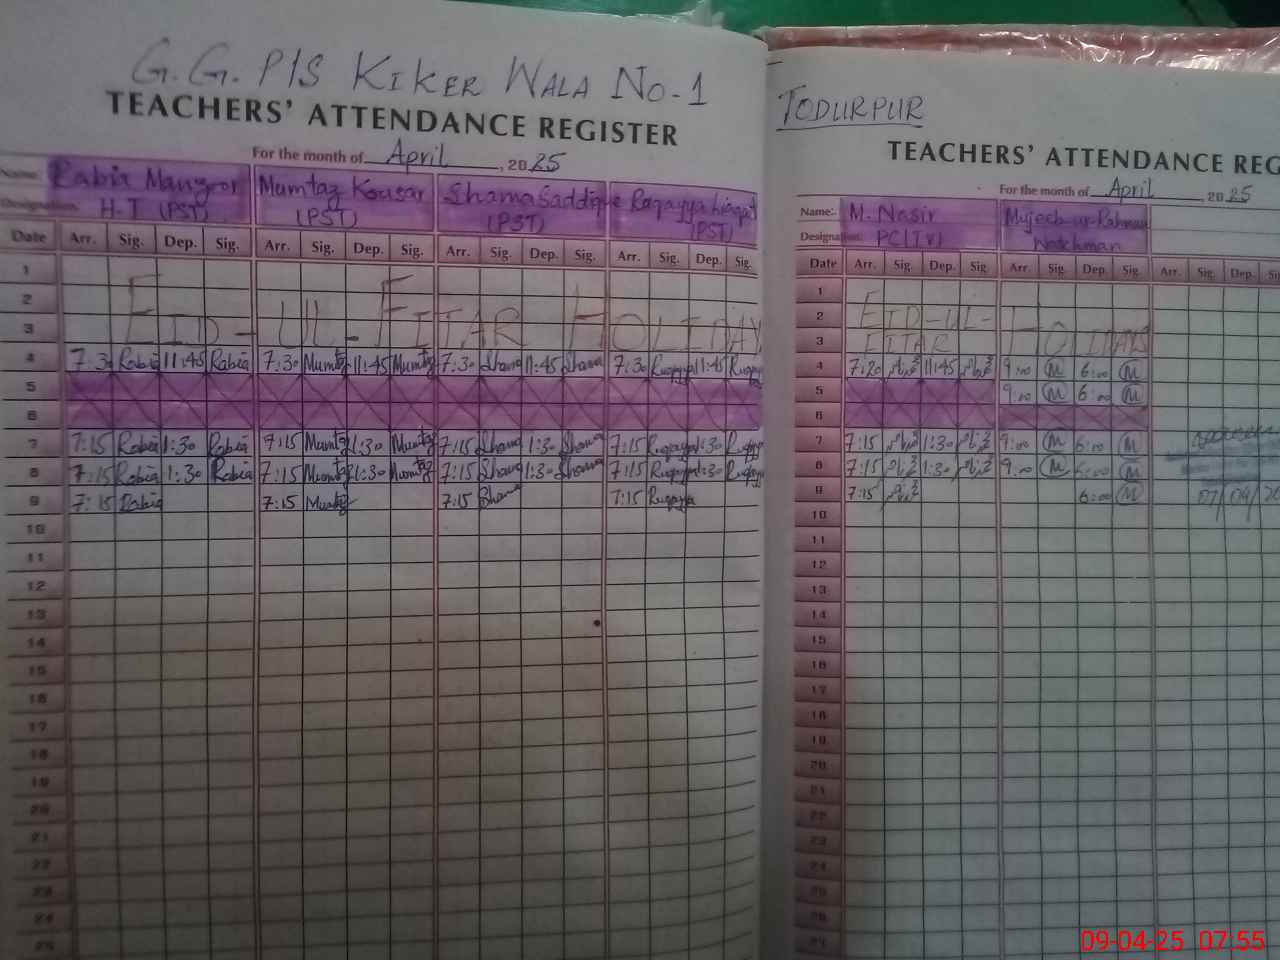 G.G.P/S KIKER WALA NO-1
TEACHERS' ATTENDANCE REGISTER
For the month of April, 2025
Name: Rabia Manzoor Mumtaz Kousar Shama Saddique Ruqayya Liaqat
Designation: H-T (PST) (PST) (PST) (PST)
Date Arr. Sig. Dep. Sig. Arr. Sig. Dep. Sig. Arr. Sig. Dep. Sig. Arr. Sig. Dep. Sig.
1
2
3 EID-UL-FITAR HOLIDAY
4 7:30 Rabia 11:45 Rabia 7:30 Mumtaz 11:45 Mumtaz 7:30 Shama 11:45 Shama 7:30 Ruqayya 11:45 Ruqayya
5
6
7 7:15 Rabia 1:30 Rabia 7:15 Mumtaz 1:30 Mumtaz 7:15 Shama 1:30 Shama 7:15 Ruqayya 1:30 Ruqayya
8 7:15 Rabia 1:30 Rabia 7:15 Mumtaz 1:30 Mumtaz 7:15 Shama 1:30 Shama 7:15 Ruqayya 1:30 Ruqayya
9 7:15 Rabia 7:15 Mumtaz 7:15 Shama 7:15 Ruqayya
10
11
12
13
14
15
16
17
18
19
20
21
22
23
24
25
TODURPUR
TEACHERS' ATTENDANCE REG
For the month of April 2025
Name: M. Nasir Mujeeb-ur-Rahman
Designation: PC(IV) Watchman
Date Arr. Sig. Dep. Sig. Arr. Sig. Dep. Sig. Arr. Sig. Dep. S
1
2 EID-UL-
3 FITAR HOLIDAYS
4 7:20 11:45 9:00 M 6:00 M
5 9:00 M 6:00 M
6
7 7:15 1:30 9:00 M 6:00 M
8 7:15 1:30 9:00 M 6:00 M
9 7:15 6:00 M 07/04/20
10
11
12
13
14
15
16
17
18
19
20
21
22
23
24
25
26
27
09-04-25 07:55